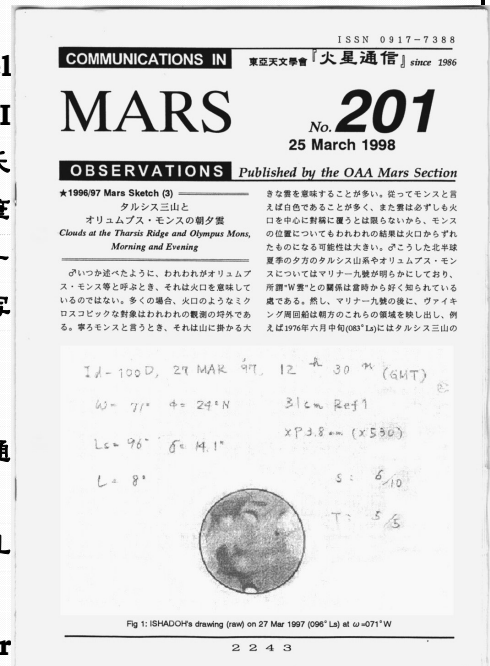 ISSN 0917-7388
COMMUNICATIONS IN
東亞天文學會『火星通信』since 1986
MARS
No. 201
25 March 1998
OBSERVATIONS
Published by the OAA Mars Section
★1996/97 Mars Sketch (3)
タルシス三山と
オリュムプス・モンスの朝夕雲
Clouds at the Tharsis Ridge and Olympus Mons,
Morning and Evening
♂いつか述べたように、われわれがオリュムプ
ス・モンス等と呼ぶとき、それは火口を意味して
いるのではない。多くの場合、火口のようなミク
ロスコピックな對象はわれわれの觀測の埒外であ
る。寧ろモンスと言うとき、それは山に掛かる大
きな雲を意味することが多い。從ってモンスと言
えば白色であることが多く、また雲は必ずしも火
口を中心に對稱に覆うとは限らないから、モンス
の位置についてもわれわれの結果は火口からずれ
たものになる可能性は大きい。♂こうした北半球
夏季の夕方のタルシス山系やオリュムプス・モン
スについてはマリナー九號が明らかにしており、
所謂"W雲"との關係は當時から好く知られている
處である。然し、マリナー九號の後に、ヴァイキ
ング周回船は朝方のこれらの領域を映し出し、例
えば1976年六月中旬(083°Ls)にはタルシス三山の
Id-100D, 27 MAR '97, 12h 30m (GMT)
ω= 71° φ= 24°N
31cm Refl
×P3.8mm (×530)
Ls= 96° δ= 14.1°
L= 8°
S: 6/10
T: 5/5
Fig 1: ISHADOH's drawing (raw) on 27 Mar 1997 (096° Ls) at ω=071°W
2243